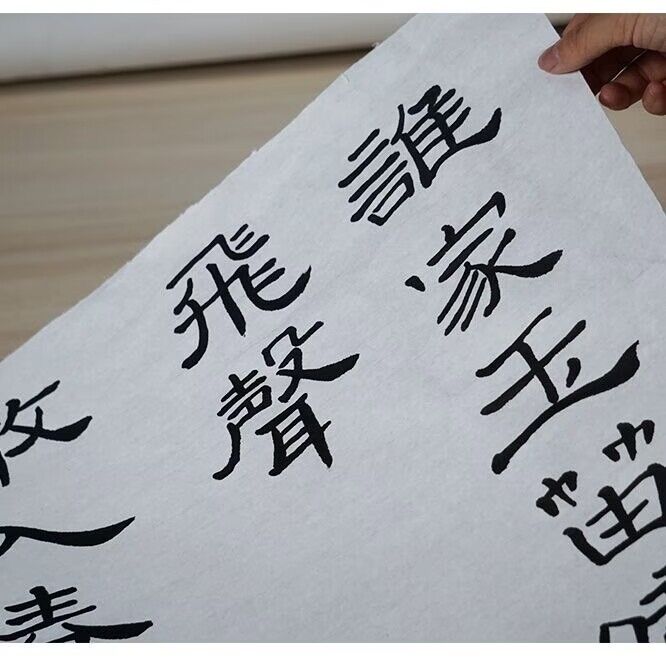 誰家玉笛
飛聲
入春